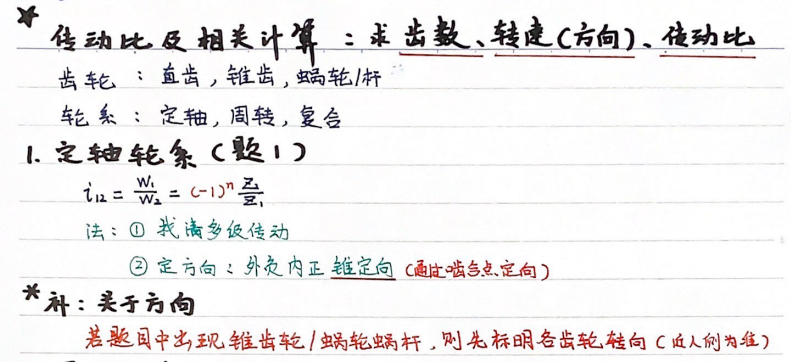 * 传动比及相关计算：求齿数、转速(方向)、传动比
齿轮：直齿，锥齿，蜗轮/杆
轮系：定轴，周转，复合
1. 定轴轮系(题1)
i₁₂ = W₁/W₂ = (-1)ⁿ Z₂/Z₁
法：① 找清多级传动
② 定方向：外负内正 锥定向 (通过啮合点定向)
* 补：关于方向
若题目中出现锥齿轮/蜗轮蜗杆，则先标明各齿轮转向(近人侧为准)